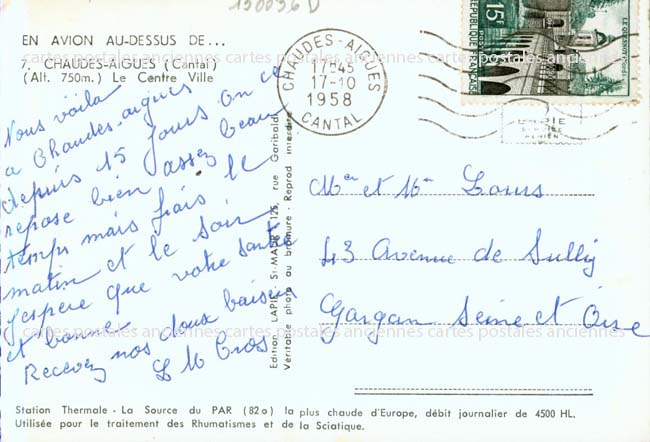 130036 D
EN AVION AU-DESSUS DE...
7. CHAUDES-AIGUES (Cantal)
(Alt. 750m.) Le Centre Ville
CHAUDES-AIGUES
17-45
17-10
1958
CANTAL
15F
REPUBLIQUE FRANÇAISE
cartes postales anciennes cartes postales anciennes cartes postales anciennes
Nous voilà
a Chaudes-aigues
depuis 15 jours on ce
repose bien assez beau
temps mais frais le
matin et le soir
j'espere que votre santé
et bonne
Recevez nos doux baisers
L M Cros
Edition LAPIE, St-MAUR, 125, rue Garibaldi
Véritable photo au bromure - Reprod interdite
Mr et Me Louis
43 Avenue de Sully
Gargan Seine et Oise
cartes postales anciennes cartes postales anciennes cartes postales anciennes
Station Thermale - La Source du PAR (82o) la plus chaude d'Europe, débit journalier de 4500 HL.
Utilisée pour le traitement des Rhumatismes et de la Sciatique.